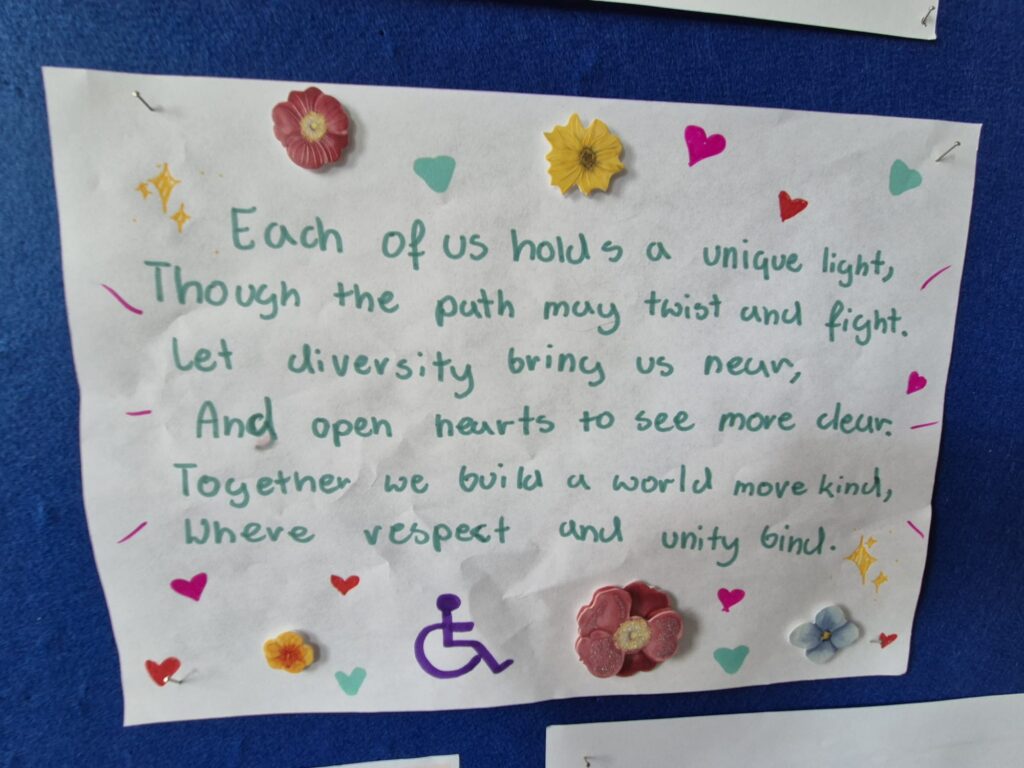 Each of us holds a unique light,
Though the path may twist and fight.
Let diversity bring us near,
And open hearts to see more clear.
Together we build a world more kind,
Where respect and unity bind.